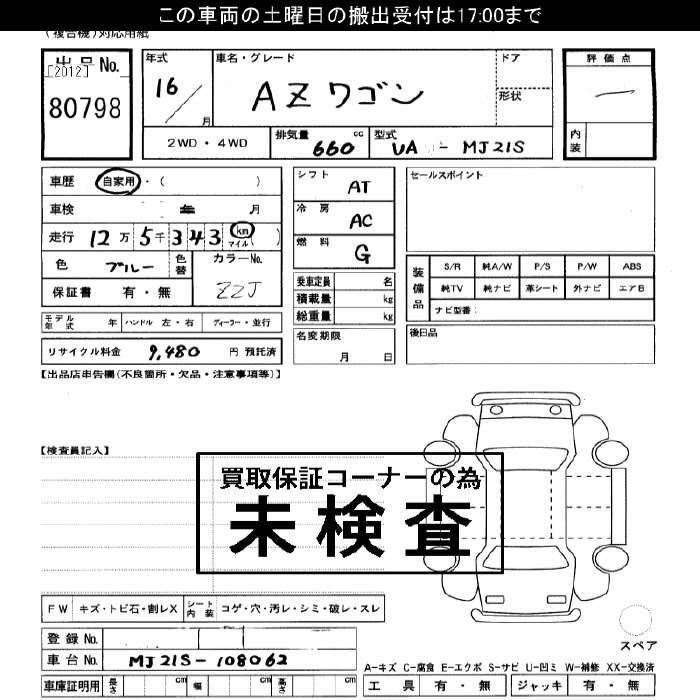 この車両の土曜日の搬出受付は17:00まで
(複合機)対応用紙
出品 No.
[2012]
80798
年式
16 / 月
車名・グレード
AZワゴン
ドア
形状
評価点
内装
2WD・4WD
排気量 660 cc
型式 UA - MJ21S
車歴 自家用・( )
車検 年 月
走行 12万5千343 km マイル ( )
色 ブルー 色替 カラーNo. ZZJ
保証書 有・無
シフト AT
冷房 AC
燃料 G
乗車定員 名
積載量 kg
総重量 kg
セールスポイント
装備品
S/R 純A/W P/S P/W ABS
純TV 純ナビ 革シート 外ナビ エアB
ナビ型番:
モデル年式 年 ハンドル 左・右 ディーラー・並行
名変期限 月 日
後日品
リサイクル料金 9,480 円 預託済
【出品店申告欄(不良箇所・欠品・注意事項等)】
【検査員記入】
買取保証コーナーの為
未検査
FW キズ・トビ石・割レX シート内装 コゲ・穴・汚レ・シミ・破レ・スレ
登録 No.
車台 No. MJ21S-108062
車庫証明用 長さ cm 幅 cm 高さ cm
スペア
A-キズ C-腐食 E-エクボ S-サビ U-凹ミ W-補修 XX-交換済
工具 有・無 ジャッキ 有・無